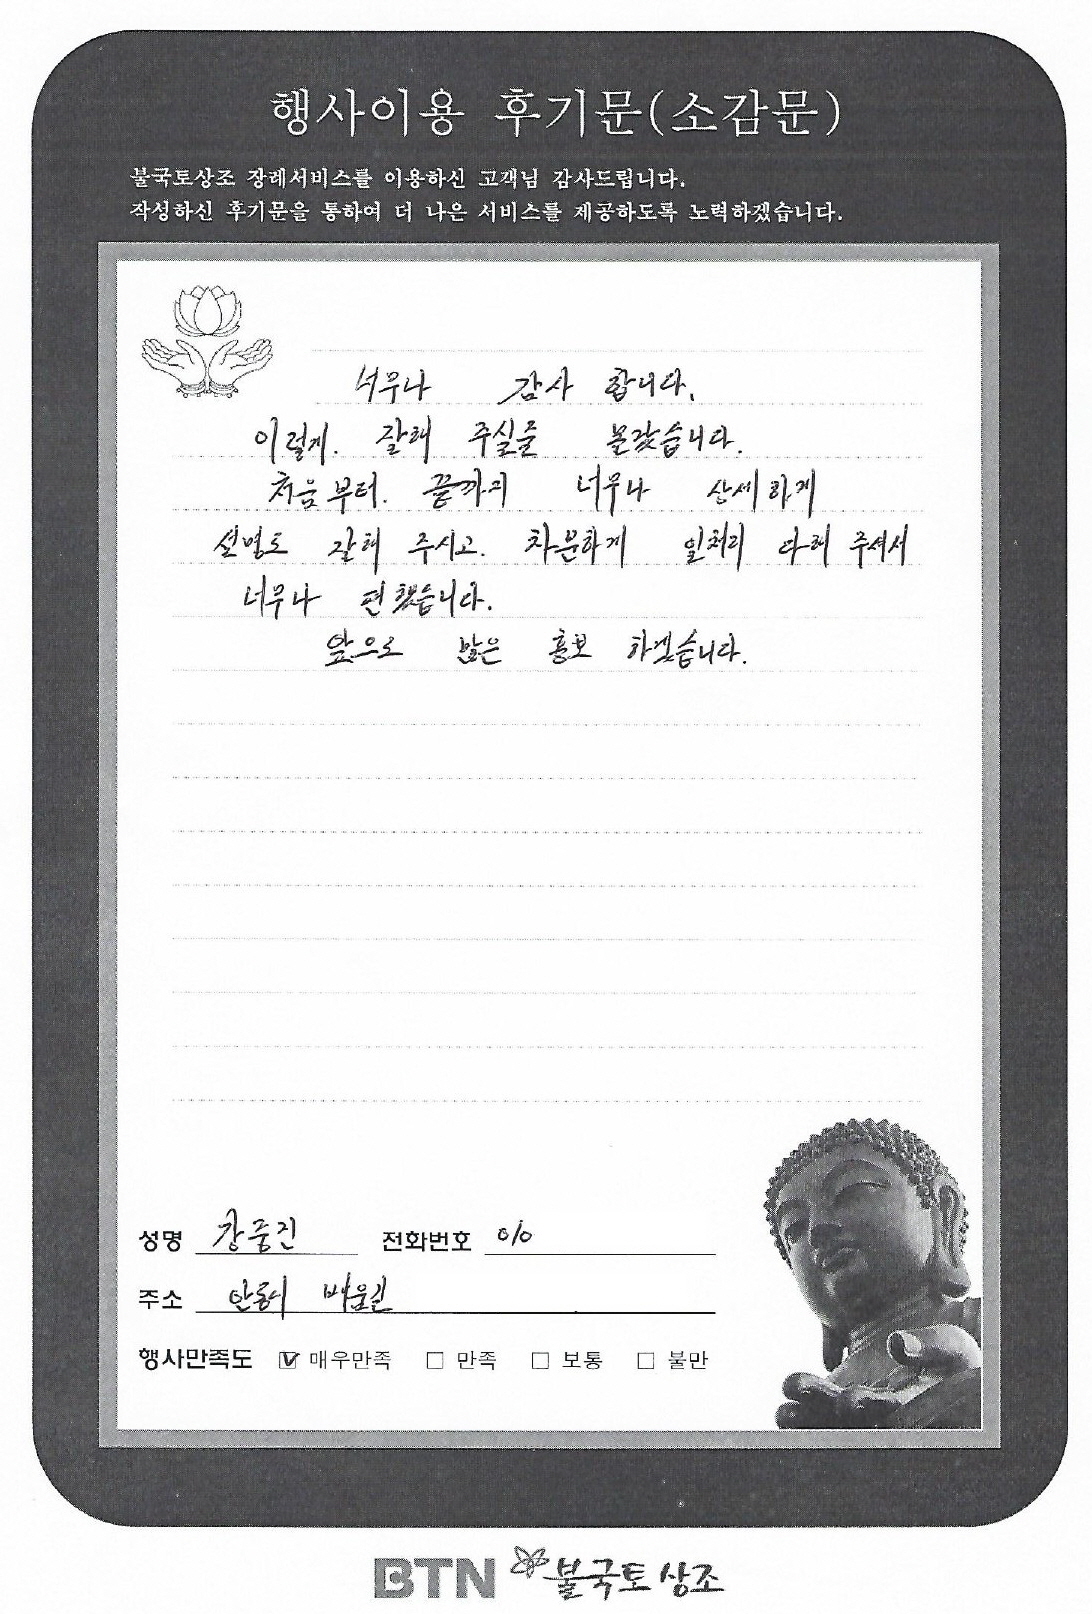 행사이용 후기문(소감문)
불국토상조 장례서비스를 이용하신 고객님 감사드립니다.
작성하신 후기문을 통하여 더 나은 서비스를 제공하도록 노력하겠습니다.
너무나 감사 합니다.
이렇게. 잘해 주실줄 몰랐습니다.
처음부터. 끝까지 너무나 상세하게
설명도 잘해 주시고. 차분하게 일처리 다해 주셔서
너무나 편했습니다.
앞으로 많은 홍보 하겠습니다.
성명 전화번호 010
주소
행사만족도 ☑ 매우만족 □ 만족 □ 보통 □ 불만
BTN 불국토상조